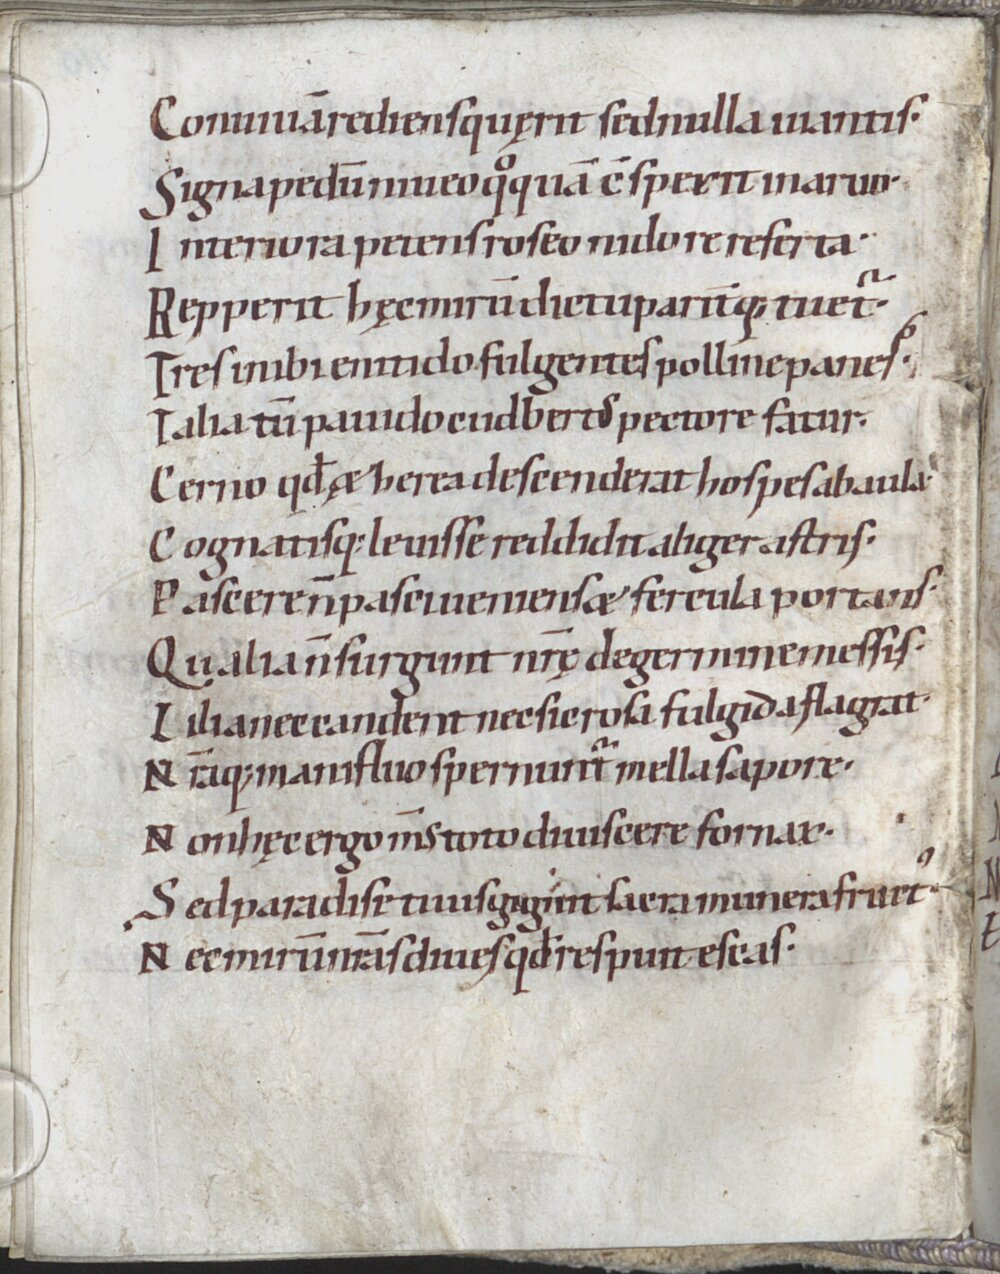 Conuiuā rediens quęrit sed nulla uiantis·
Signa pedū niueo qͦquā c̄sperit in aruo·
Interiora petens roseo nidore referta·
Repperit hęc mirū dictu paritq; tuet᷒·
Tres inibi en nitido fulgentes polline panes·
Talia tū pauido cudbertꝰ pectore fatur·
Cerno qđ ætherea descenderat hospes ab aula·
Cognatisq; leuisse reddidit aliger astris·
Pascere n̄ pasci ueniens æ fercula portans·
Qualia n̄ surgunt nr̄ę de germine messis·
Lilia nec candent nec sic rosa fulgida flagrat·
Nr̄aq; manifluo spernunt᷒ mella sapore·
Non hęc ergo m̄s toto diuiscere fornax·
Sed paradise tuus gignit sacra munera fruct9
Nec mirū nr̄as diues qđ respuit escas·